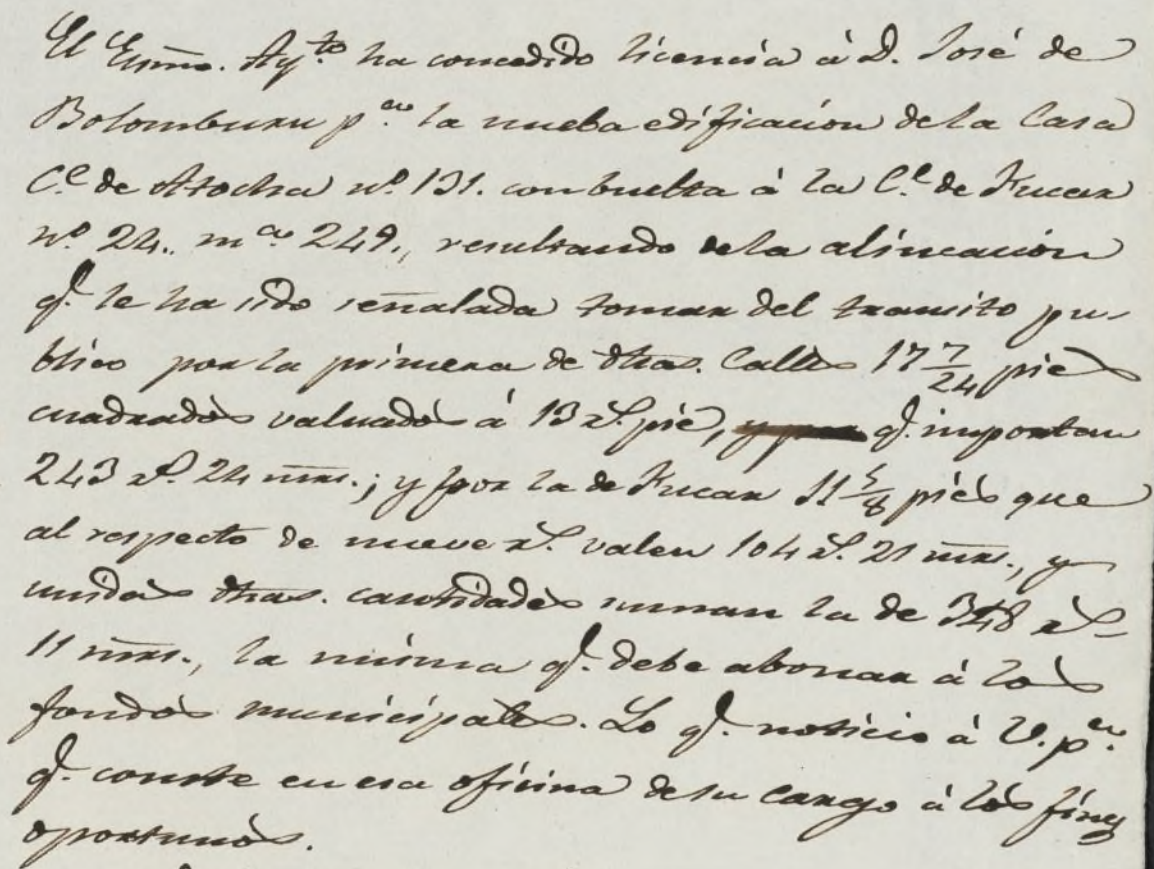 El Exmo. Ay.to ha concedido licencia á D. José de
Bolomburu p.a la nueba edificacion de la Casa
C.e de Atocha nº 131. con buelta á la C.e de Fucar
nº 24. m.a 249., resultando de la alineacion
q.e le ha sido señalada tomar del transito pu-
blico por la primera de dhas. Calles 17 7/24 pies
cuadrados valuados á 13 r.s pie, q.e importan
243 r.s 24 mrs.; y por la de Fucar 11 5/8 pies que
al respecto de nueve r.s valen 104 r.s 21 mrs., y
unidas dhas. cantidades suman la de 348 r.s
11 mrs., la misma q.e debe abonar á los
fondos municipales. Lo q.e noticio á V. p.a
q.e conste en esa oficina de su cargo á los fines
oportunos.